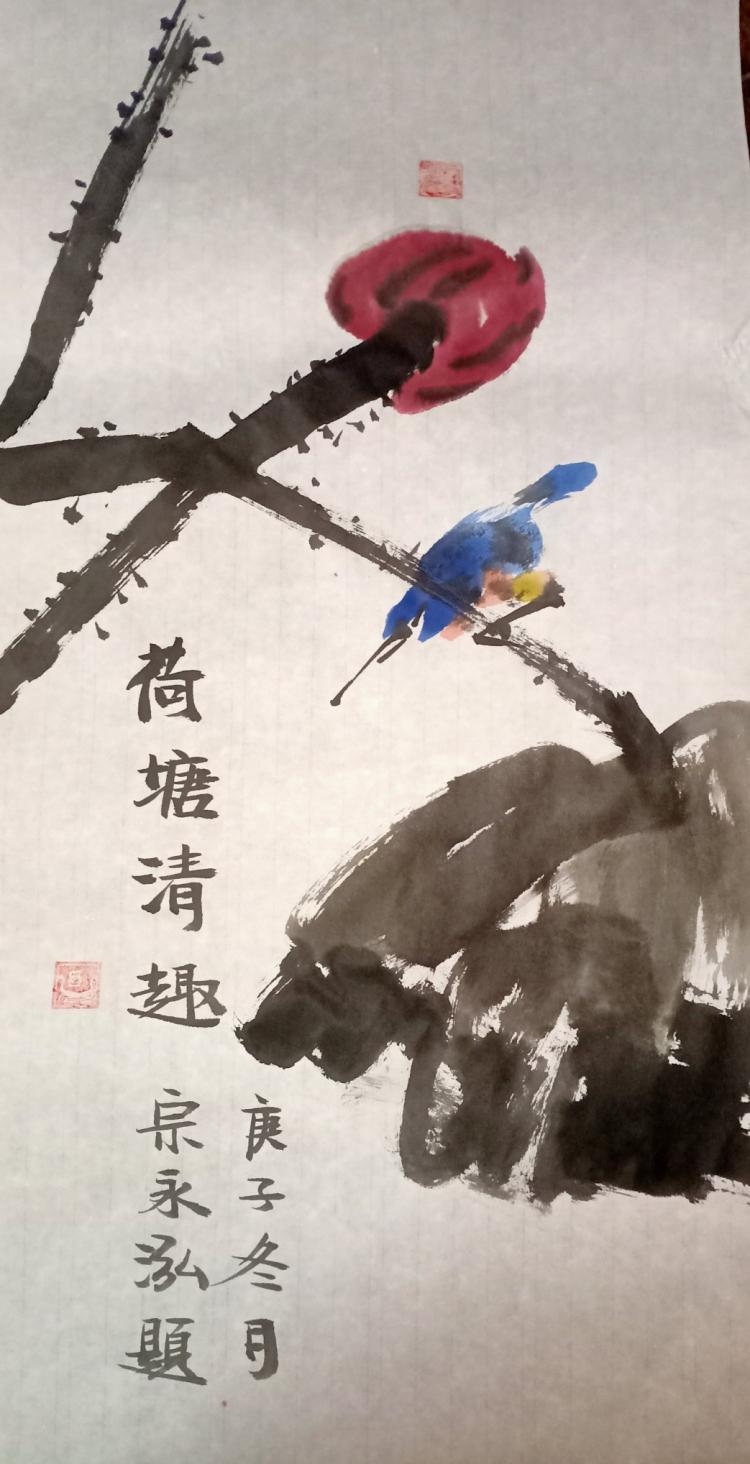 荷塘清趣
庚子冬月
宗永泓題